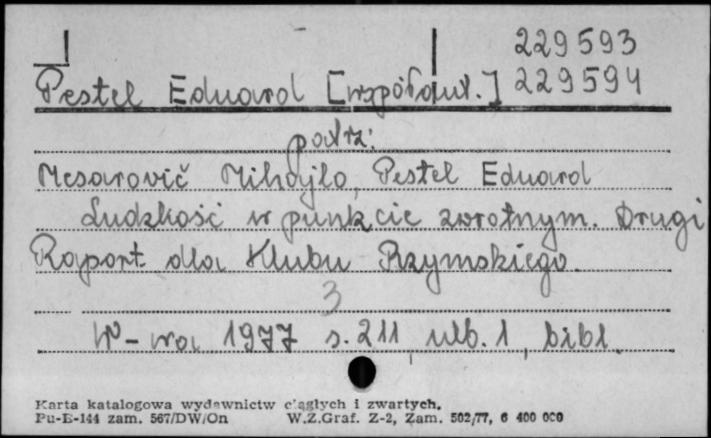 229593
Pestel Eduard [współaut.] 229594
patrz:
Mesarovič Mihajlo, Pestel Eduard
Ludzkość w punkcie zwrotnym. Drugi
Raport dla Klubu Rzymskiego.
3
W-wa 1977 s. 211, nlb. 1, bibl.
Karta katalogowa wydawnictw ciągłych i zwartych.
Pu-E-144 zam. 567/DW/On W.Z.Graf. Z-2, Zam. 502/77, 6 400 000